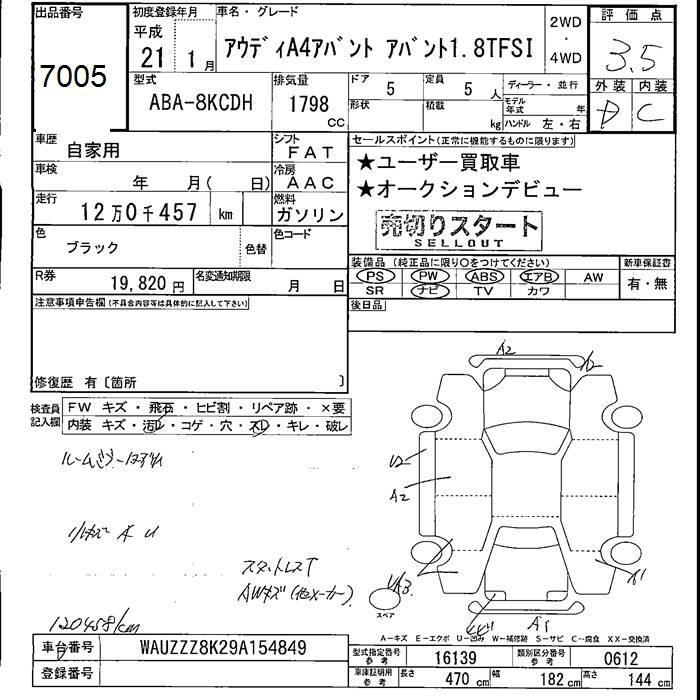 出品番号 初度登録年月 車名・グレード 2WD 評価点
7005 平成 21 1月 アウディA4アバント アバント1.8TFSI ・ 4WD 3.5
型式 排気量 ドア 5 定員 5人 ディーラー・並行 外装 内装
ABA-8KCDH 1798 CC 形状 積載 kg モデル年式 年 D C
ハンドル 左・右
車歴 自家用 シフト FAT セールスポイント(正常に機能するものに限ります)
車検 年 月( 日) 冷房 AAC ★ユーザー買取車
走行 12万0千457 km 燃料 ガソリン ★オークションデビュー
色 ブラック 色替 色コード 売切りスタート
SELLOUT
R券 19,820円 名変通知期限 月 日 装備品(純正品に限り○をつけてください) 新車保証書
PS PW ABS エアB AW 有・無
SR ナビ TV カワ
注意事項申告欄(不具合内容等は具体的に記入して下さい) 後日品
修復歴 有〔箇所 〕
検査員記入欄 FW キズ・飛石・ヒビ割・リペア跡・×要
内装 キズ・汚レ・コゲ・穴・スレ・キレ・破レ
A2
A2
U2
ルームミラーハズレ
A2
小キズ A U
スタットレスT
AWキズ(他メーカー)
A1
スペア
120458km
A1
A-キズ E-エクボ U-凹み W-補修跡 S-サビ C-腐食 XX-交換済
車台番号 WAUZZZ8K29A154849 型式指定番号 参考 16139 類別区分番号 参考 0612
登録番号 車庫証明用 参考 長さ 470cm 幅 182cm 高さ 144cm